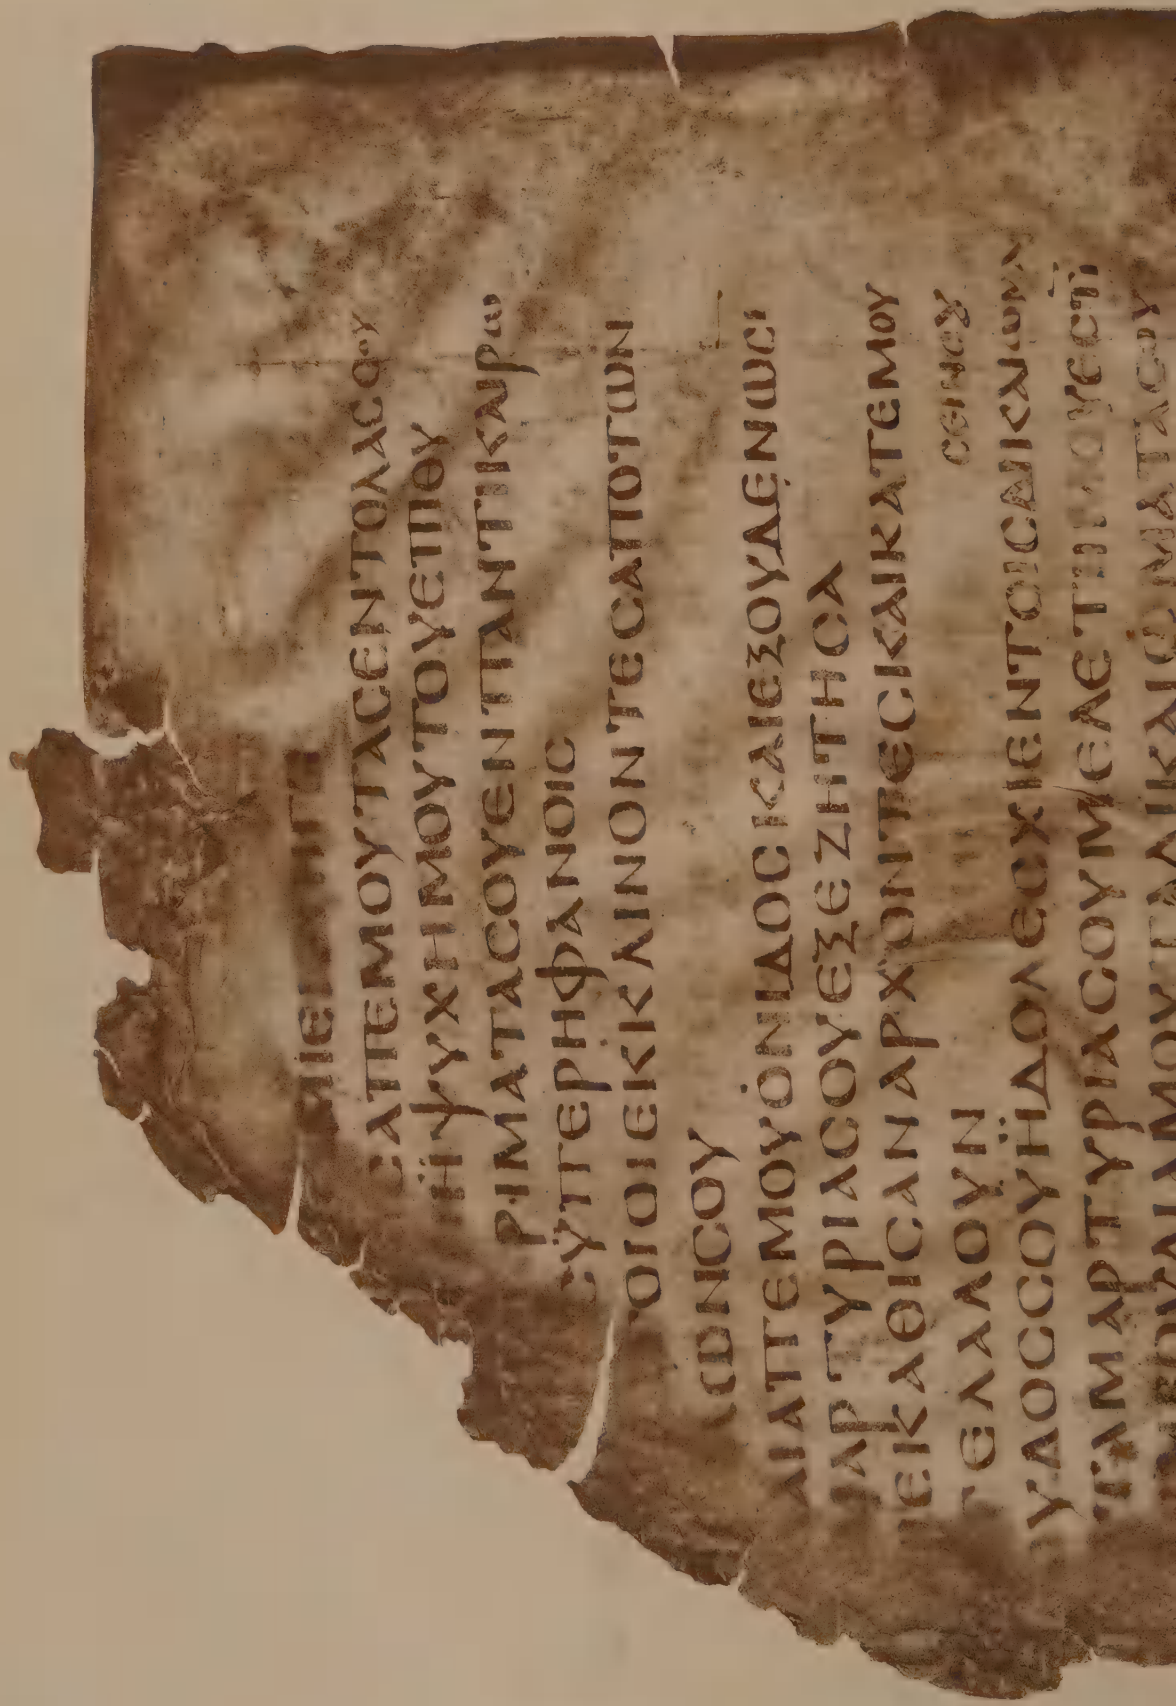 ϹΑΠΕΜΟΥΤΑϹΕΝΤΟΛΑϹϹΟΥ
ΗΨΥΧΗΜΟΥΤΟΥΕΠΙΘΥ
ΡΙΜΑΤΑϹΟΥΕΝΠΑΝΤΙΚΑΙΡΩ
ϹΫΠΕΡΗΦΑΝΟΙϹ
ΟΙΟΙΕΚΚΛΙΝΟΝΤΕϹΑΠΟΤΩΝ
ΩΝϹΟΥ
ΑΠΕΜΟΥΟΝΙΔΟϹΚΑΙΕΞΟΥΔΕΝΩϹΙ
ΑΡΤΥΡΙΑϹΟΥΕΞΕΖΗΤΗϹΑ
ΕΚΑΘΙϹΑΝΑΡΧΟΝΤΕϹΚΑΙΚΑΤΕΜΟΥ
ΤΕΛΑΛΟΥΝ ϹΕΙΝϹΟΥ
ΥΛΟϹϹΟΥΗΔΟΛΕϹΧΙΕΝΤΟΙϹΔΙΚΑΙΩΜΑ
ΤΑΜΑΡΤΥΡΙΑϹΟΥΜΕΛΕΤΗΜΟΥΕϹΤΙ
ΜΟΥΤΑΔΙΚΑΙΩΜΑΤΑϹΟΥ